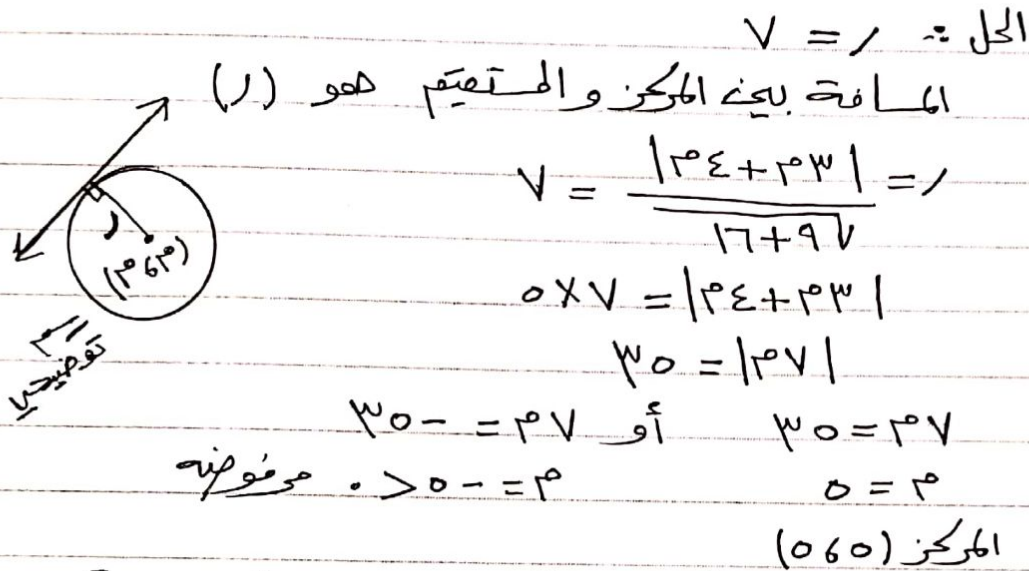 الحل :- ر = ٧
المسافة بين المركز والمستقيم هو (ر)
ر = |٣م + ٤م| / √(٩ + ١٦) = ٧
|٣م + ٤م| = ٧ × ٥
|٧م| = ٣٥
٧م = ٣٥ أو ٧م = -٣٥
م = ٥ م = -٥ < ٠ مرفوضه
المركز (٥ ، ٥)
ر
(م ، م)
رسم
توضيحي